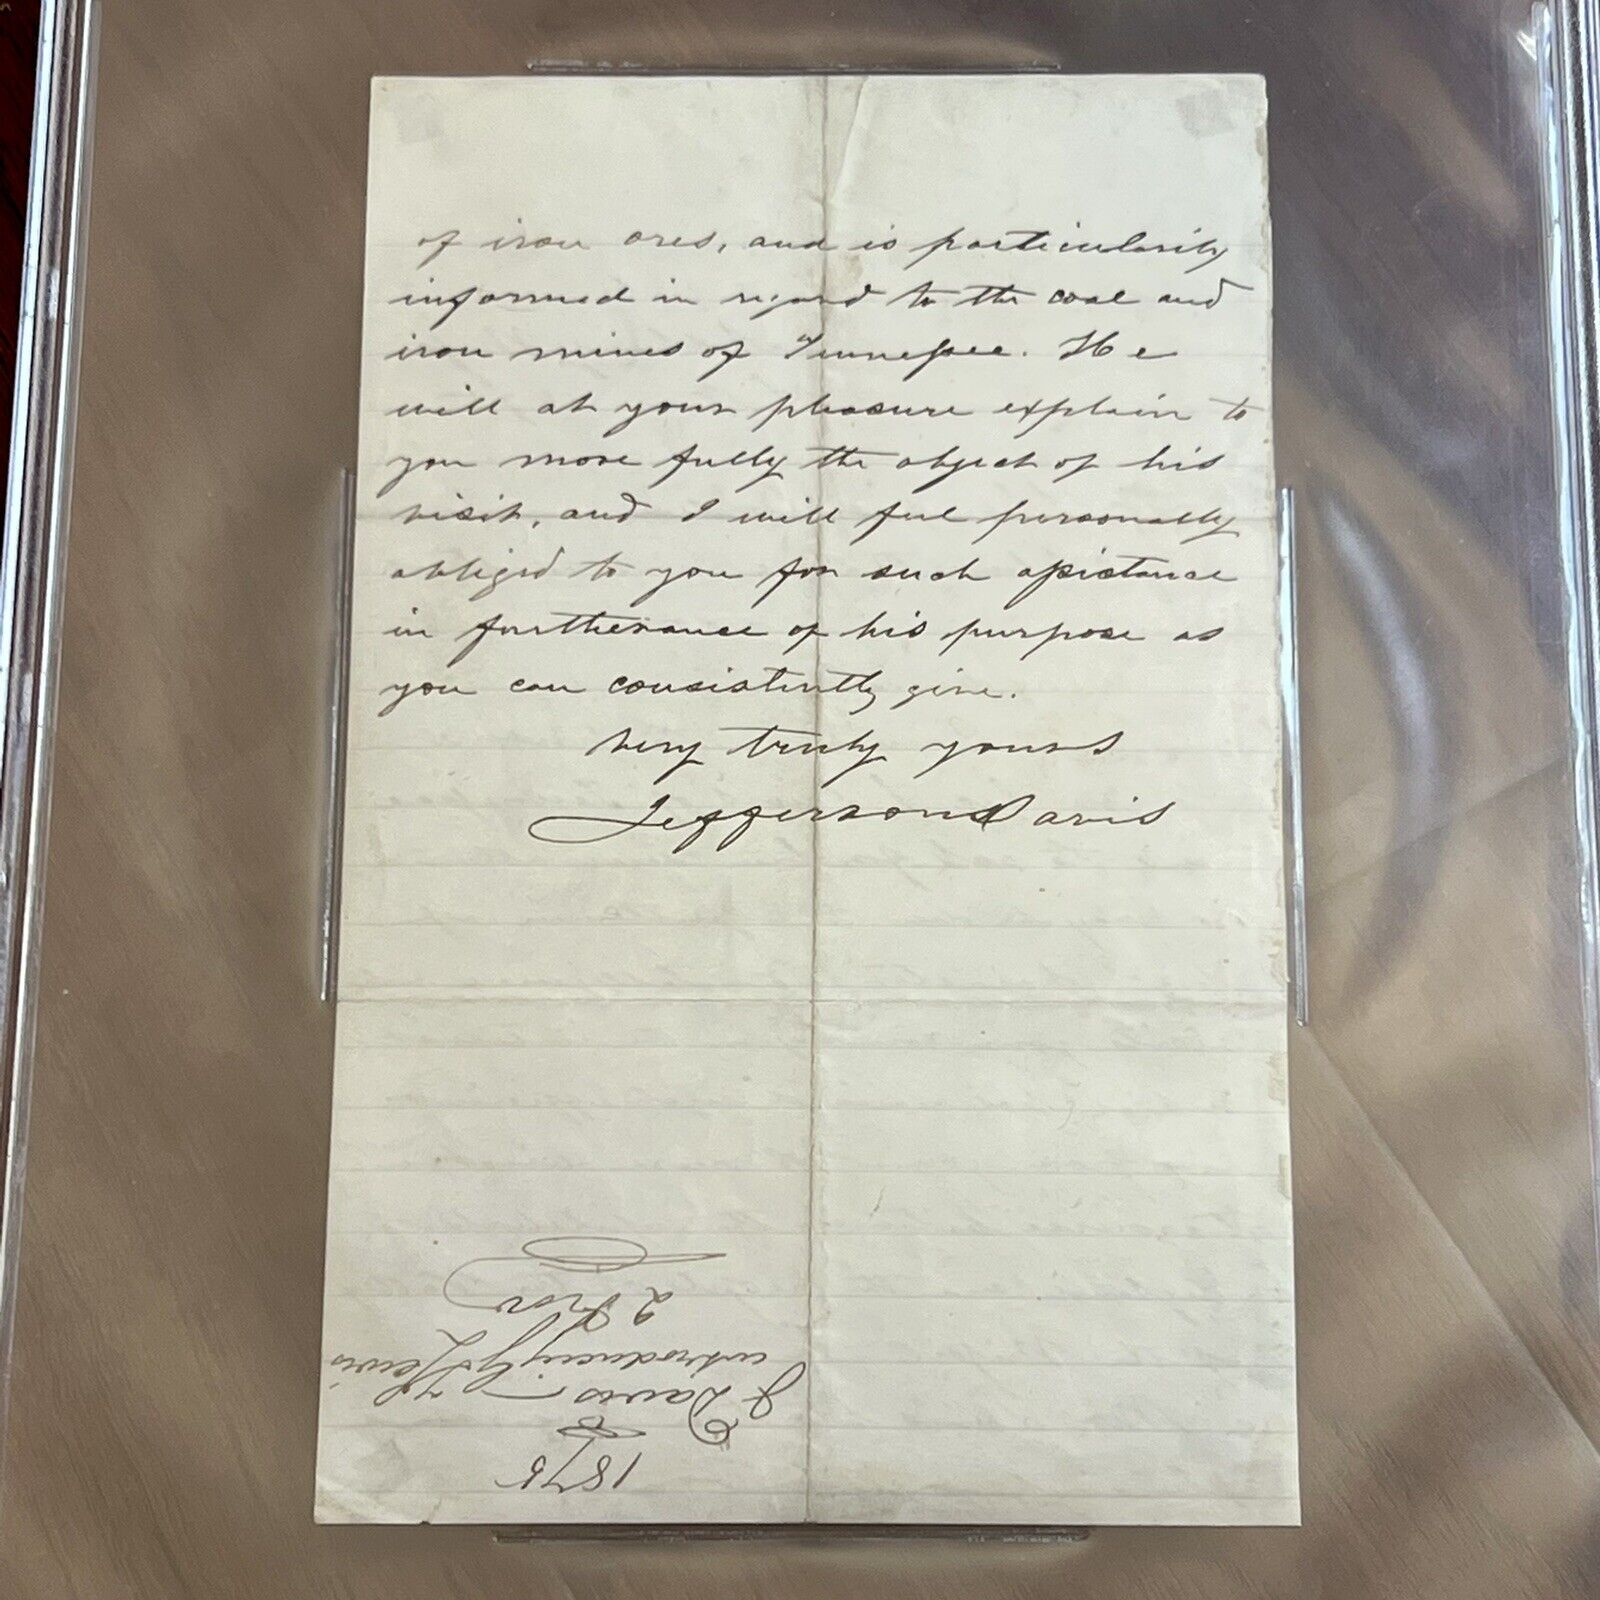 of iron ores, and is particularly
informed in regard to the coal and
iron mines of Tennessee. He
will at your pleasure explain to
you more fully the object of his
visit, and I will feel personally
obliged to you for such assistance
in furtherance of his purpose as
you can consistently give.
very truly yours
Jefferson Davis
1875
J Davis
introducing
Lewis
2